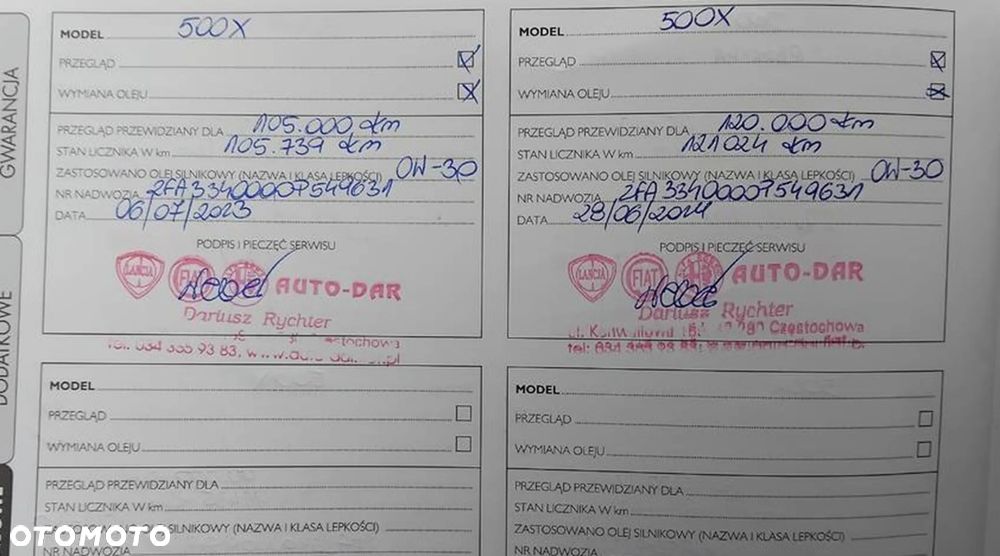 GWARANCJA
DODATKOWE
MODEL 500X
PRZEGLĄD
WYMIANA OLEJU
PRZEGLĄD PRZEWIDZIANY DLA 105.000 km
STAN LICZNIKA W km 105.739 km
ZASTOSOWANO OLEJ SILNIKOWY (NAZWA I KLASA LEPKOŚCI) 0W-30
NR NADWOZIA ZFA3340000P549631
DATA 06/07/2023
PODPIS I PIECZĘĆ SERWISU
LANCIA FIAT AUTO-DAR
Dariusz Rychter
tel. 034 355 93 83, www.
MODEL 500X
PRZEGLĄD
WYMIANA OLEJU
PRZEGLĄD PRZEWIDZIANY DLA 120.000 km
STAN LICZNIKA W km 121024 km
ZASTOSOWANO OLEJ SILNIKOWY (NAZWA I KLASA LEPKOŚCI) 0W-30
NR NADWOZIA ZFA3340000P549631
DATA 28/06/2024
PODPIS I PIECZĘĆ SERWISU
LANCIA FIAT AUTO-DAR
Dariusz Rychter
Częstochowa
tel:
MODEL
PRZEGLĄD
WYMIANA OLEJU
PRZEGLĄD PRZEWIDZIANY DLA
STAN LICZNIKA W km
ZASTOSOWANO OLEJ SILNIKOWY (NAZWA I KLASA LEPKOŚCI)
NR NADWOZIA
MODEL
PRZEGLĄD
WYMIANA OLEJU
PRZEGLĄD PRZEWIDZIANY DLA
STAN LICZNIKA W km
ZASTOSOWANO OLEJ SILNIKOWY (NAZWA I KLASA LEPKOŚCI)
NR NADWOZIA
OTOMOTO